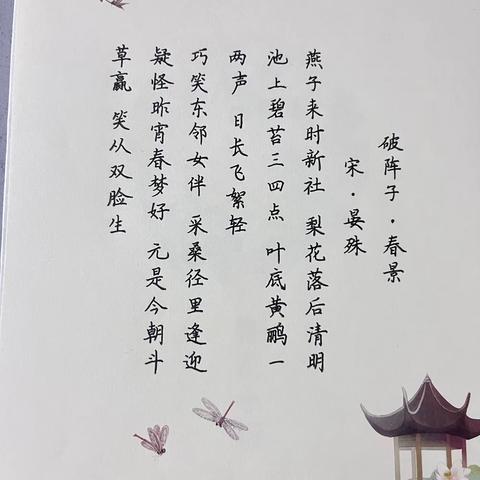 破阵子·春景
宋·晏殊
燕子来时新社 梨花落后清明
池上碧苔三四点 叶底黄鹂一
两声 日长飞絮轻
巧笑东邻女伴 采桑径里逢迎
疑怪昨宵春梦好 元是今朝斗
草赢 笑从双脸生